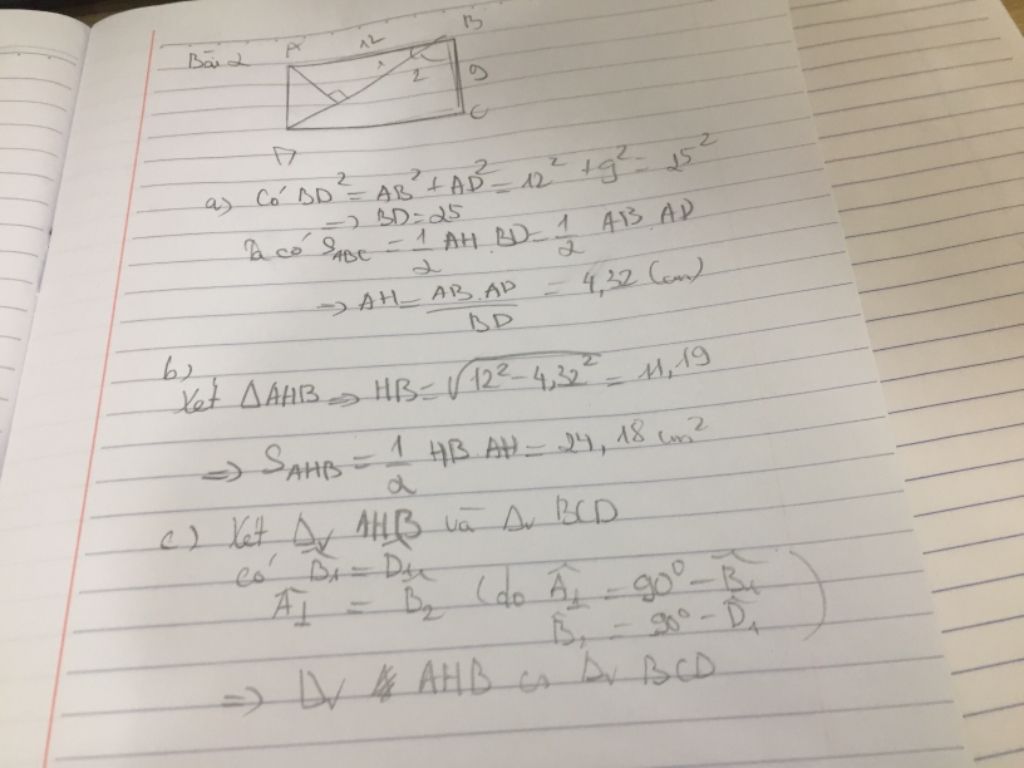 Bài 2
A 12 B
1 2 9
D C
a) Có BD² = AB² + AD² = 12² + 9² = 25²
=> BD = 25
Ta có S_ABC = 1/2 AH . BD = 1/2 AB . AD
=> AH = AB . AD / BD = 4,32 (cm)
b)
Xét ΔAHB => HB = √(12² - 4,32²) = 11,19
=> S_AHB = 1/2 HB . AH = 24,18 cm²
c) Xét Δv AHB và Δv BCD
có B̂₁ = D̂₁
Â₁ = B̂₂ (do Â₁ = 90⁰ - B̂₁
B̂₁ = 90⁰ - D̂₁)
=> Δv AHB ∽ Δv BCD